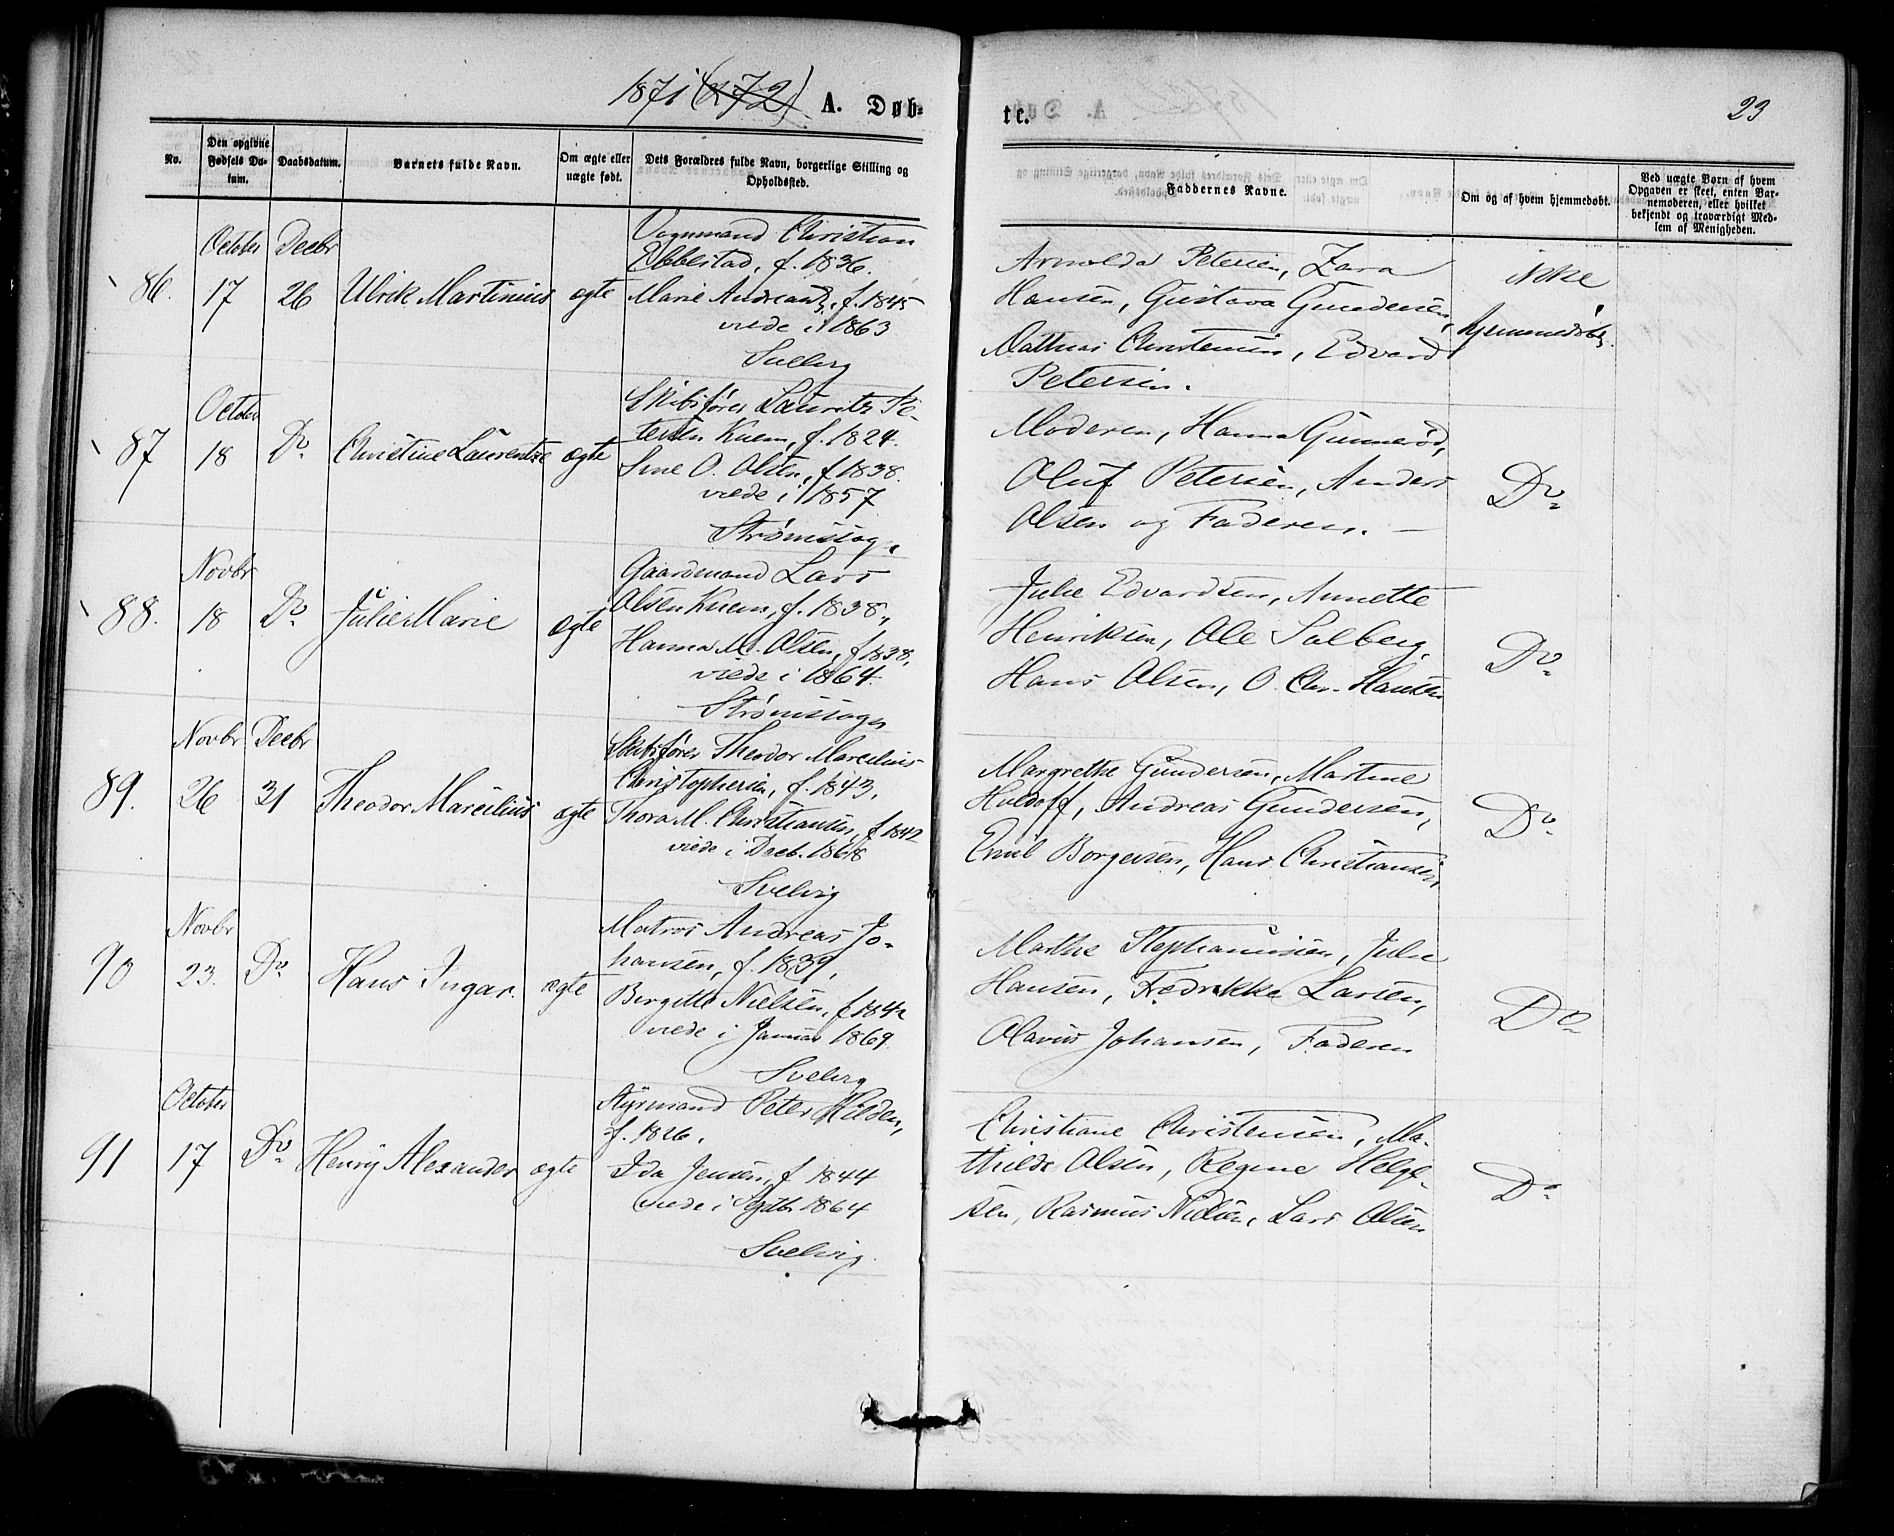 1871 (& 72) A. Døb-
No.
Den opgivne Fødsels Da-tum.
Daabsdatum.
Barnets fulde Navn.
Om ægte eller uægte født.
Dets Forældres fulde Navn, borgerlige Stilling og Opholdssted.
October Decbr
86. 17 26 Ulrik Martinius ægte
Vognmand Christian
Ebbestad, f. 1836.
Marie Andreasd., f. 1845
viede i 1863
Svelvig
October
87 18 Do Christine Laurentze ægte
Skibsfører Lauritz Pe-
tersen Knem, f. 1824.
Sine O. Olsen, f 1838.
viede i 1857
Strømstog.
Novbr
88. 18 Do Julie Marie ægte
Gaardmand Lars
Olsen Knem, f. 1838.,
Hanna M. Olsen, f 1838,
viede i 1864.
Strømstog
Novbr Decbr
89. 26 31 Theodor Marcilius ægte
Skibsfører Theodor Marcilius
Christophersen, f. 1843.
Thora M. Christiansen, f 1842
viede i Decb. 1868
Svelvig
Novbr
90 23. Do Hans Ingar. ægte
Matros Andreas Jo-
hansen, f. 1839,
Bergitte Nielsen, f 1842
viede i Januar 1869.
Svelvig
October
91 17 Do Henry Alexander ægte
Styrmand Peter Hilden,
f. 1826.
Ida Jensen, f 1844
viede i Septb. 1864
Svelvig.
te.
23
Faddernes Navne.
Om og af hvem hjemmedøbt.
Ved uægte Børn af hvem
Opgaven er skeet, enten Bar-
nemoderen, eller hvilket
bekjendt og troværdigt Med-
lem af Menigheden.
Arnolda Petersen, Zara
Hansen, Gustava Gundersen,
Mathias Christensen, Edvard
Petersen.
Ikke
hjemmedøbt.
Moderen, Hanna Gunnerød,
Oluf Petersen, Anders
Olsen og Faderen. —
Do
Julie Edvardsen, Annette
Henriksen, Ole Solberg,
Hans Olsen, O. Chr. Hansen
Do
Margrethe Gundersen, Martine
Hvidoff, Andreas Gundersen,
Emil Borgersen, Hans Christiansen
Do
Marthe Stephansen, Julie
Hansen, Fredrikke Larsen,
Olavus Johansen, Faderen
Do
Christiane Christensen, Ma-
thilde Olsen, Regine Helge-
sen, Rasmus Nielsen, Lars Olsen
Do